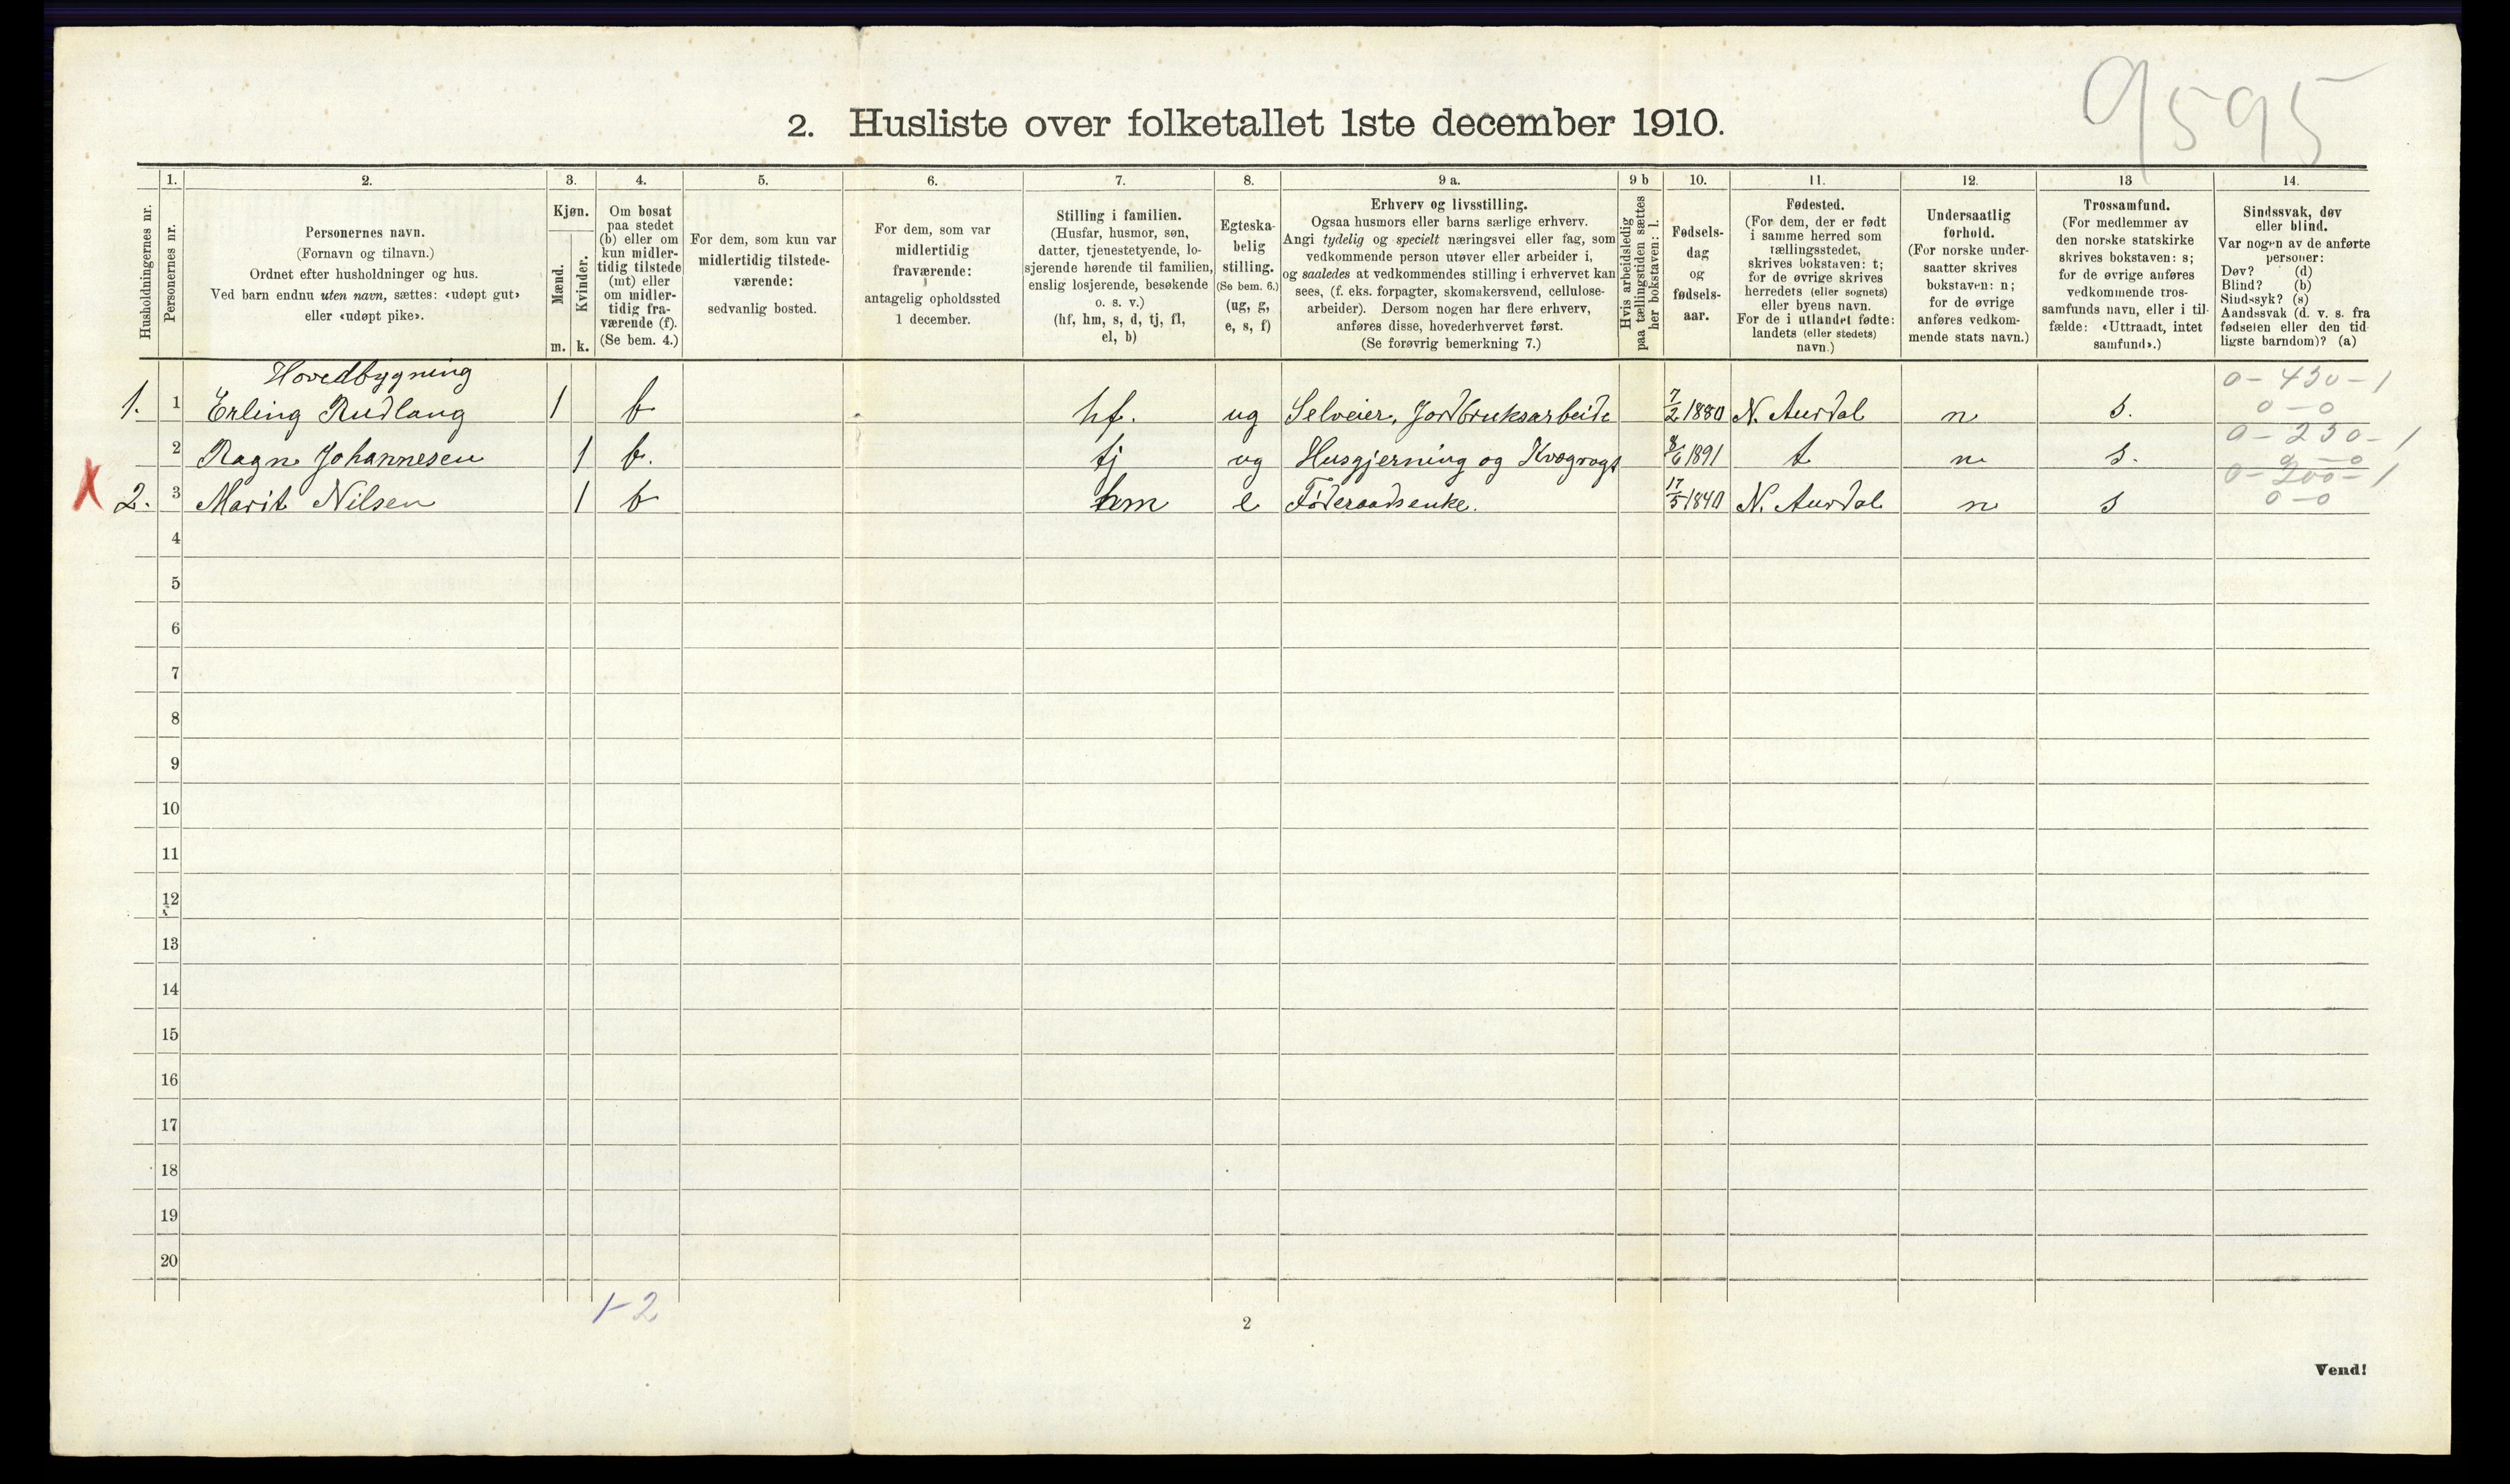 9595
2. Husliste over folketallet 1ste december 1910.
1. 2. 3. 4. 5. 6. 7. 8. 9 a. 9 b 10. 11. 12. 13 14.
Husholdningernes nr.
Personernes nr.
Personernes navn.
(Fornavn og tilnavn.)
Ordnet efter husholdninger og hus.
Ved barn endnu uten navn, sættes: «udøpt gut»
eller «udøpt pike».
Kjøn.
Mænd.
Kvinder.
m. k.
Om bosat
paa stedet
(b) eller om
kun midler-
tidig tilstede
(mt) eller
om midler-
tidig fra-
værende (f).
(Se bem. 4.)
For dem, som kun var
midlertidig tilstede-
værende:
sedvanlig bosted.
For dem, som var
midlertidig
fraværende:
antagelig opholdssted
1 december.
Stilling i familien.
(Husfar, husmor, søn,
datter, tjenestetyende, lo-
sjerende hørende til familien,
enslig losjerende, besøkende
o. s. v.)
(hf, hm, s, d, tj, fl,
el, b)
Egteska-
belig
stilling.
(Se bem. 6.)
(ug, g,
e, s, f)
Erhverv og livsstilling.
Ogsaa husmors eller barns særlige erhverv.
Angi tydelig og specielt næringsvei eller fag, som
vedkommende person utøver eller arbeider i,
og saaledes at vedkommendes stilling i erhvervet kan
sees, (f. eks. forpagter, skomakersvend, cellulose-
arbeider). Dersom nogen har flere erhverv,
anføres disse, hovederhvervet først.
(Se forøvrig bemerkning 7.)
Hvis arbeidsledig
paa tællingstiden sættes
her bokstaven: l.
Fødsels-
dag
og
fødsels-
aar.
Fødested.
(For dem, der er født
i samme herred som
tællingsstedet,
skrives bokstaven: t;
for de øvrige skrives
herredets (eller sognets)
eller byens navn.
For de i utlandet fødte:
landets (eller stedets)
navn.)
Undersaatlig
forhold.
(For norske under-
saatter skrives
bokstaven: n;
for de øvrige
anføres vedkom-
mende stats navn.)
Trossamfund.
(For medlemmer av
den norske statskirke
skrives bokstaven: s;
for de øvrige anføres
vedkommende tros-
samfunds navn, eller i til-
fælde: «Uttraadt, intet
samfund».)
Sindssvak, døv
eller blind.
Var nogen av de anførte
personer:
Døv? (d)
Blind? (b)
Sindssyk? (s)
Aandssvak (d. v. s. fra
fødselen eller den tid-
ligste barndom)? (a)
Hovedbygning
0-450-1
1. 1 Erling Rudlang 1 b hf. ug Selveier, Jordbruksarbeide 7/2 1880 N. Aurdal n s. 0-0
0-250-1
2 Ragn Johannesen 1 b. tj ug Husgjerning og Kvægrøgt 8/6 1891 t n s. 0-0
0-200-1
X 2. 3 Marit Nilsen 1 b hm e Føderaadsenke. 17/5 1840 N. Aurdal n s 0-0
4
5
6
7
8
9
10
11
12
13
14
15
16
17
18
19
20
1-2
2
Vend!